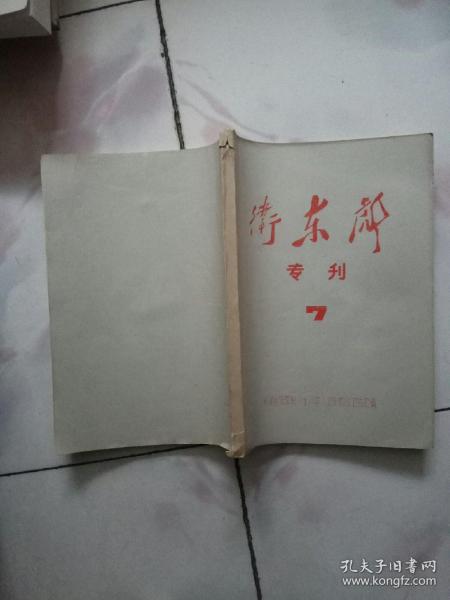 衛东部
专刊
7
孔夫子旧书网
www.kongfz.com